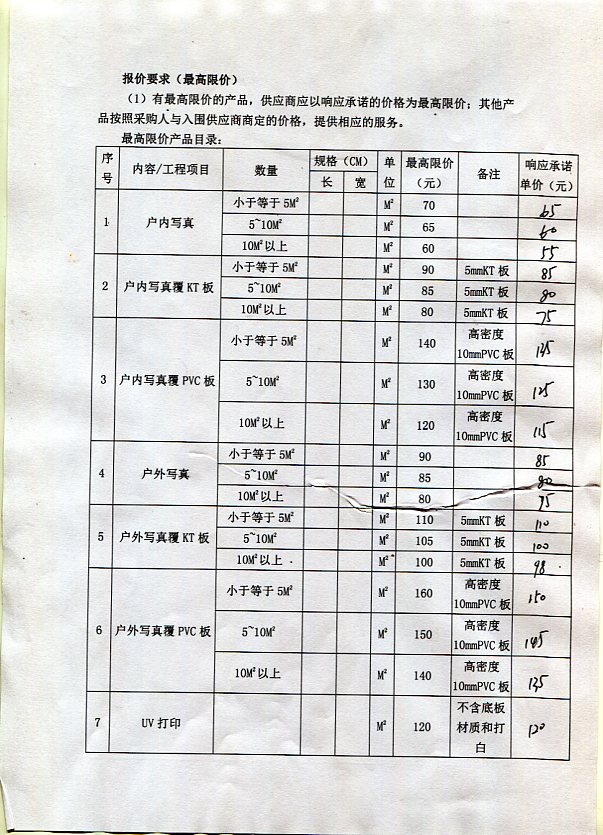 报价要求（最高限价）
（1）有最高限价的产品，供应商应以响应承诺的价格为最高限价；其他产
品按照采购人与入围供应商商定的价格，提供相应的服务。
最高限价产品目录：
序号 内容/工程项目 数量 规格（CM） 长 宽 单位 最高限价（元） 备注 响应承诺单价（元）
1 户内写真 小于等于5M² M² 70 65
5~10M² M² 65 60
10M²以上 M² 60 55
2 户内写真覆KT板 小于等于5M² M² 90 5mmKT板 85
5~10M² M² 85 5mmKT板 80
10M²以上 M² 80 5mmKT板 75
3 户内写真覆PVC板 小于等于5M² M² 140 高密度10mmPVC板 135
5~10M² M² 130 高密度10mmPVC板 125
10M²以上 M² 120 高密度10mmPVC板 115
4 户外写真 小于等于5M² M² 90 85
5~10M² M² 85 80
10M²以上 M² 80 75
5 户外写真覆KT板 小于等于5M² M² 110 5mmKT板 110
5~10M² M² 105 5mmKT板 100
10M²以上 M² 100 5mmKT板 98
6 户外写真覆PVC板 小于等于5M² M² 160 高密度10mmPVC板 150
5~10M² M² 150 高密度10mmPVC板 145
10M²以上 M² 140 高密度10mmPVC板 135
7 UV打印 M² 120 不含底板材质和打白 120